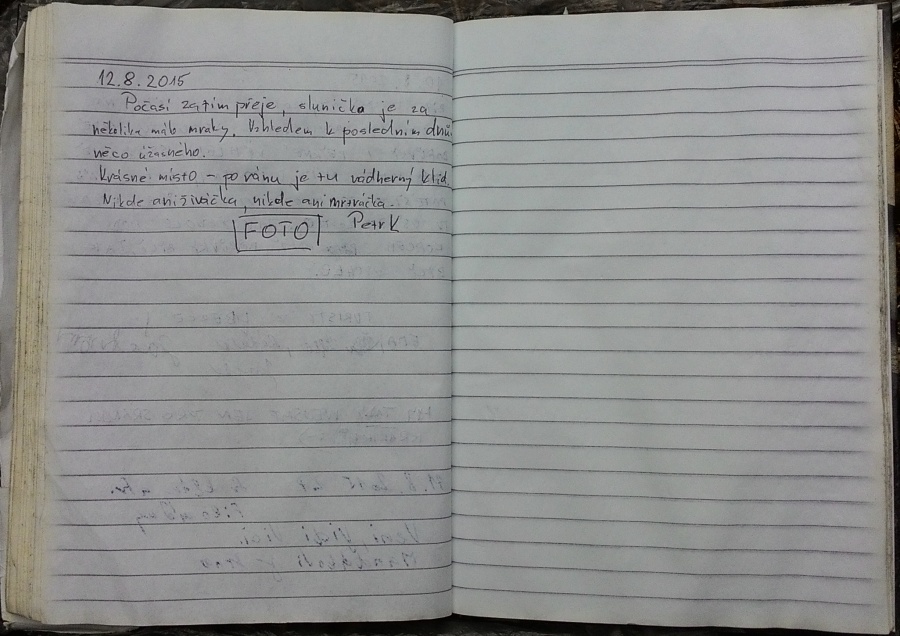 12.8.2015
Počasí zatím přeje, sluníčko je za
několika málo mraky. Vzhledem k posledním dnů
něco úžasného.
Krásné místo - po ránu je tu nádherný klid.
Nikde ani živáčka, nikde ani mrtváčka.
FOTO PetrK